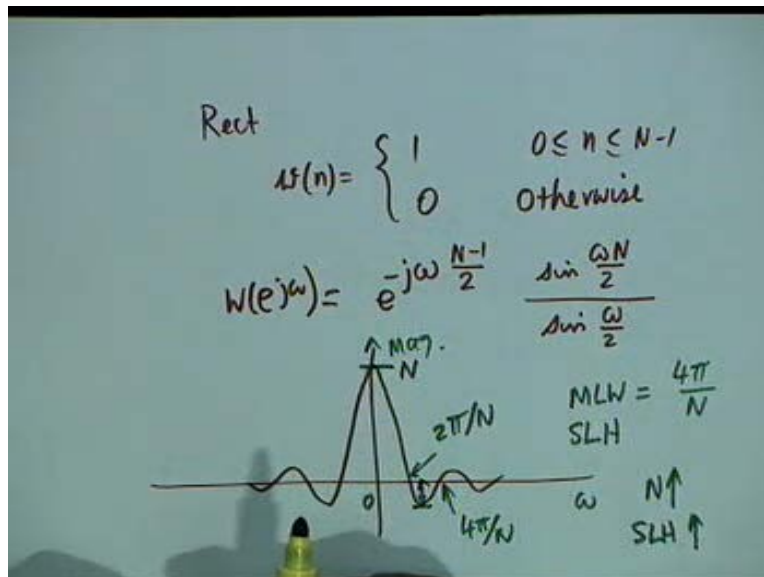 Rect
w(n) = { 1 0 ≤ n ≤ N-1
0 Otherwise
W(e^jω) = e^-jω (N-1)/2 (sin ωN/2)/(sin ω/2)
Mag.
N
2π/N
MLW = 4π/N
SLH
0
4π/N
ω
N↑
SLH ↑